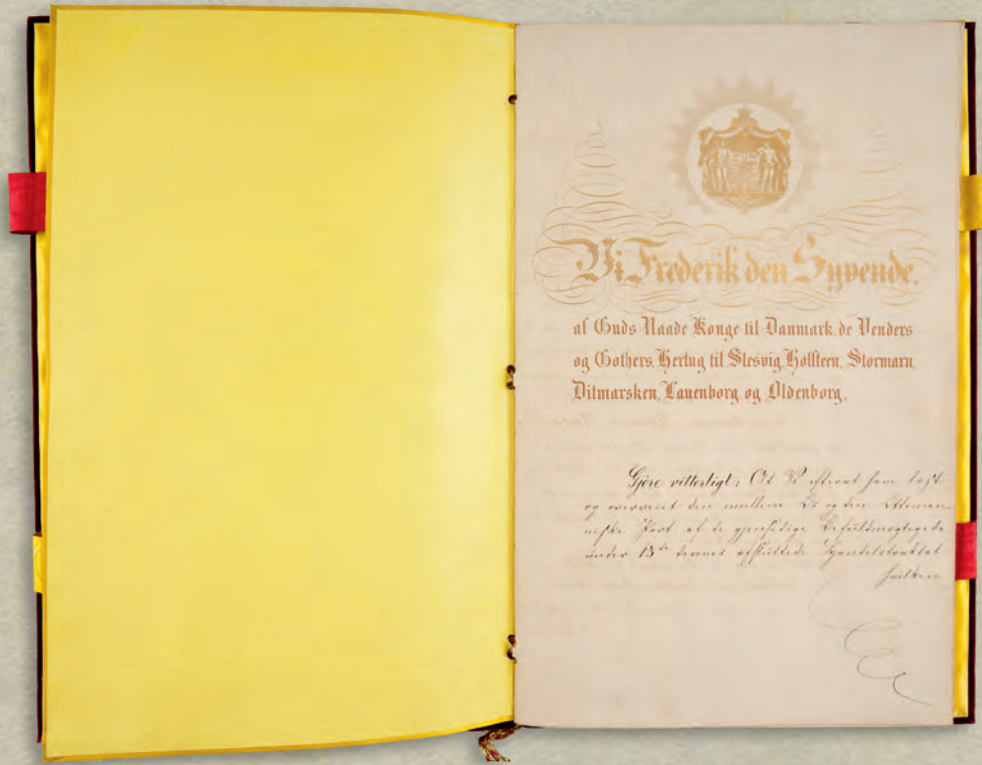 Vi Frederik den Syvende,
af Guds Naade Konge til Danmark, de Venders
og Gothers, Hertug til Slesvig, Holsteen, Stormarn,
Ditmarsken, Lauenborg og Oldenborg,
Gjøre vitterligt: At Vi efterat have læst
og overveiet den imellem Os og den Ottoman-
niske Port af de gjensidige Befuldmægtigede
under 13de dennes afsluttede Handelstraktat
hvilken